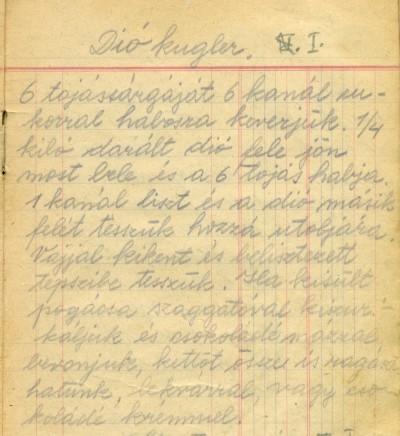 Dió kugler. I.
6 tojássárgáját 6 kanál cu-
korral habosra keverjük. 1/4
kiló darált dió fele jön
most bele és a 6 tojás habja.
1 kanál liszt és a dió másik
felét tesszük hozzá utoljára.
Vajjal kikent és belisztezett
tepszibe tesszük. Ha kisült
pogácsa szaggatóval kiszur-
káljuk és csokoládé mázzal
bevonjuk, kettőt össze is ragaszt
hatunk, lekvárral, vagy cso-
koládé krémmel.